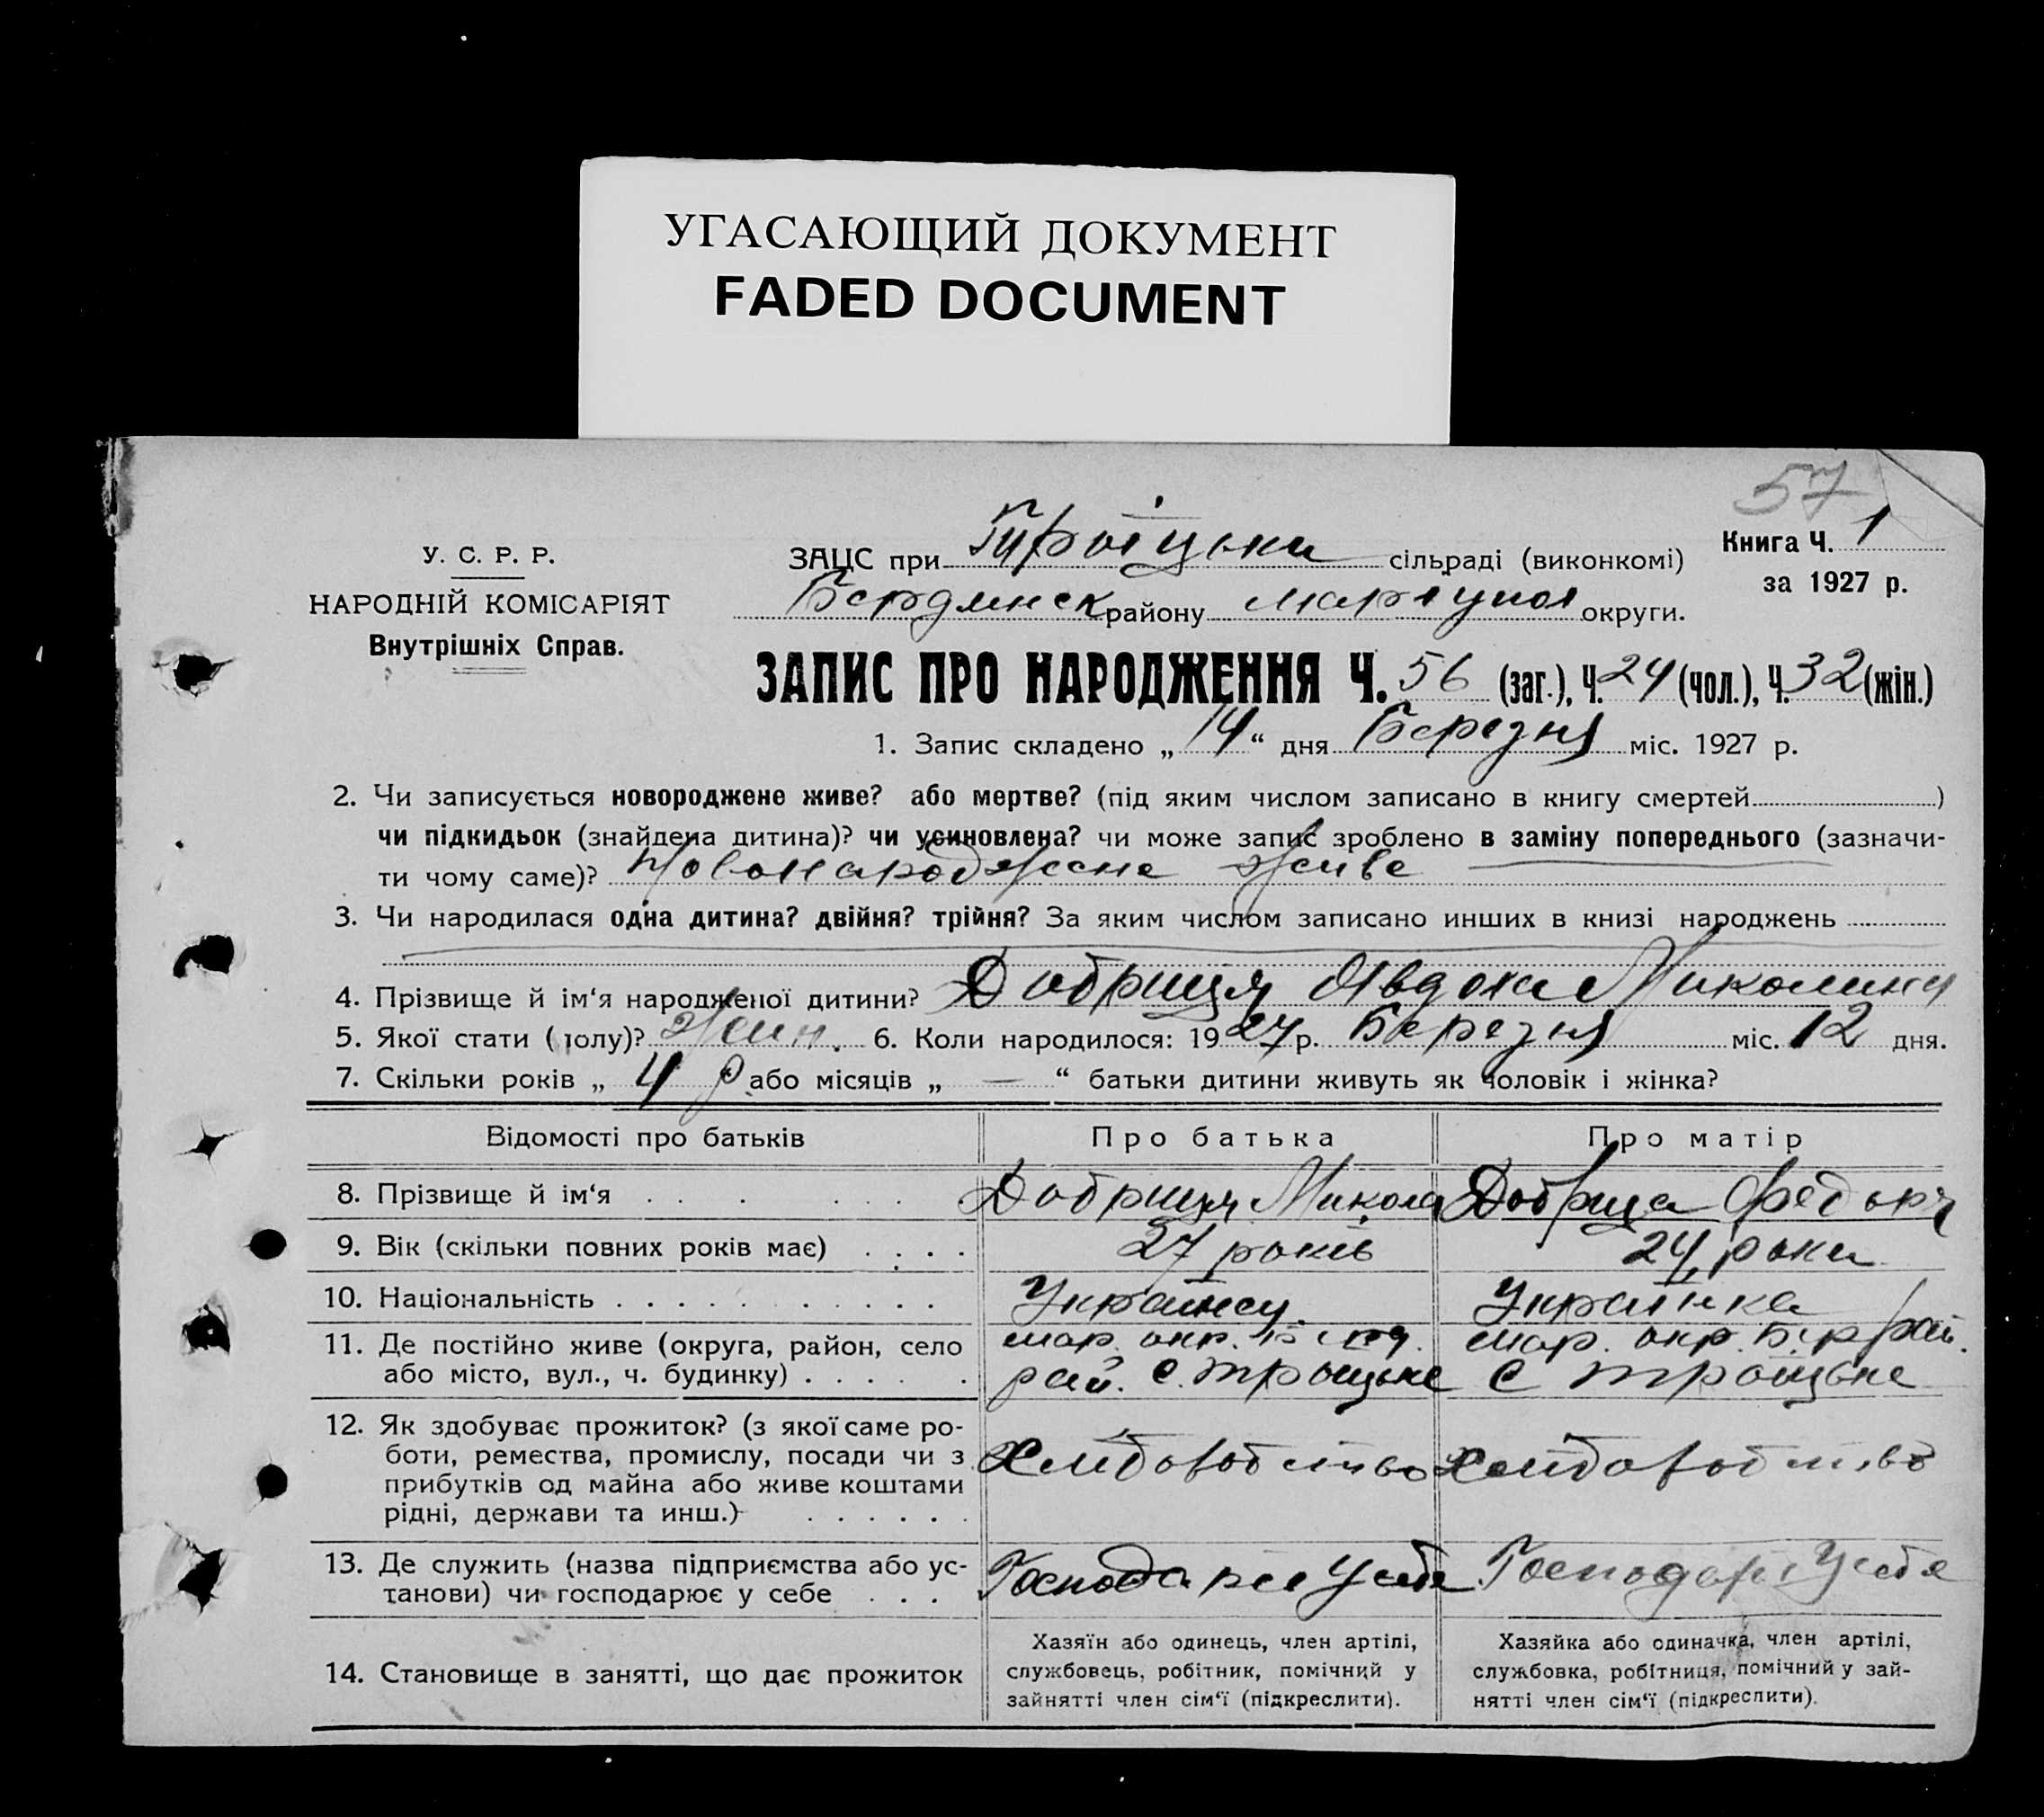 УГАСАЮЩИЙ ДОКУМЕНТ
FADED DOCUMENT
57
Книга Ч. 1
за 1927 р.
У. С. Р. Р.
НАРОДНІЙ КОМІСАРІЯТ
Внутрішніх Справ.
ЗАЦС при Троїцькій сільраді (виконкомі)
Бердянськ району Маріупол округи.
ЗАПИС ПРО НАРОДЖЕННЯ Ч. 56 (заг.), Ч. 24 (чол.), Ч. 32 (жін.)
1. Запис складено „ 14 “ дня Березня міс. 1927 р.
2. Чи записується новороджене живе? або мертве? (під яким числом записано в книгу смертей )
чи підкидьок (знайдена дитина)? чи усиновлена? чи може запис зроблено в заміну попереднього (зазначи-
ти чому саме)? Новонароджене живе
3. Чи народилася одна дитина? двійня? трійня? За яким числом записано инших в книзі народжень
4. Прізвище й ім‘я народженої дитини? Добриця Явдоха Миколина
5. Якої стати (полу)? Жін. 6. Коли народилося: 1927 р. Березня міс. 12 дня.
7. Скільки років „ 4 р. або місяців „ — “ батьки дитини живуть як чоловік і жінка?
Відомості про батьків Про батька Про матір
8. Прізвище й ім‘я Добриця Микола Добрица Федора
9. Вік (скільки повних років має) 27 років 24 роки
10. Національність Українец Українка
11. Де постійно живе (округа, район, село мар. окр. Берд. мар. окр. Бер рай.
або місто, вул., ч. будинку) рай. с. Троицьке с Троїцьке
12. Як здобуває прожиток? (з якої саме ро-
боти, ремества, промислу, посади чи з Хліборобство Хліборобство
прибутків од майна або живе коштами
рідні, держави та инш.)
13. Де служить (назва підприємства або ус- Господарює у себе Господарює у себе
танови) чи господарює у себе
14. Становище в занятті, що дає прожиток
Хазяїн або одинець, член артілі,
службовець, робітник, помічний у
зайнятті член сім‘ї (підкреслити).
Хазяйка або одиначка, член артілі,
службовка, робітниця, помічний у зай-
нятті член сім‘ї (підкреслити).